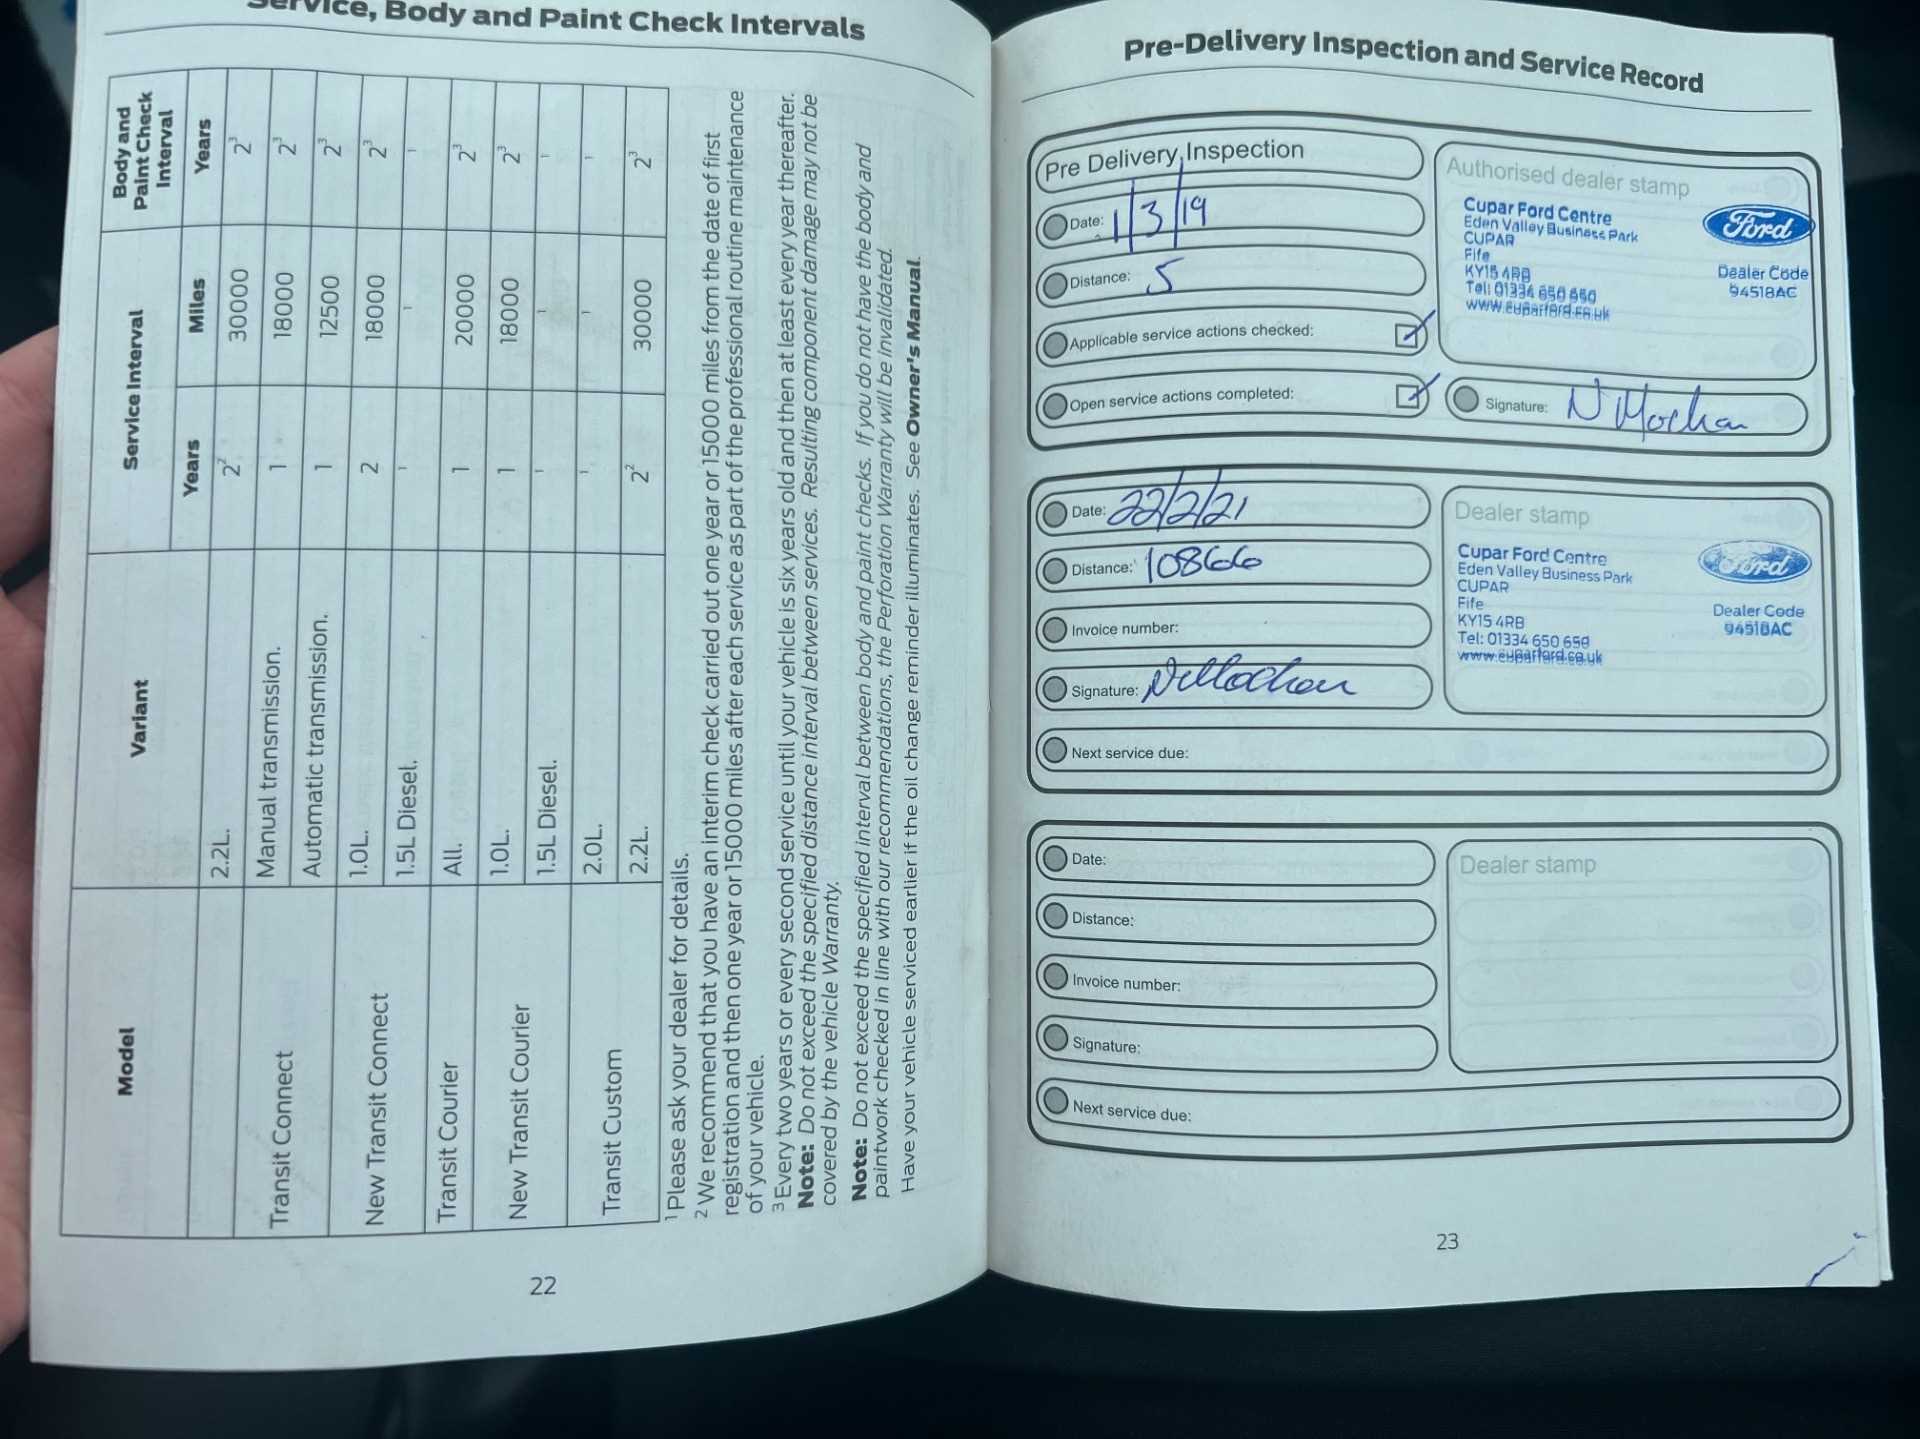 Service, Body and Paint Check Intervals
Model Variant Service Interval Body and Paint Check Interval
Years Miles Years
2.2L. 2² 30000 2³
Transit Connect Manual transmission. 1 18000 2³
Automatic transmission. 1 12500 2³
New Transit Connect 1.0L. 2 18000 2³
1.5L Diesel. ¹ ¹ ¹
Transit Courier All. 1 20000 2³
New Transit Courier 1.0L. 1 18000 2³
1.5L Diesel. ¹ ¹ ¹
Transit Custom 2.0L. ¹ ¹ ¹
2.2L. 2² 30000 2³
¹ Please ask your dealer for details.
² We recommend that you have an interim check carried out one year or 15000 miles from the date of first
registration and then one year or 15000 miles after each service as part of the professional routine maintenance
of your vehicle.
³ Every two years or every second service until your vehicle is six years old and then at least every year thereafter.
Note: Do not exceed the specified distance interval between services. Resulting component damage may not be
covered by the vehicle Warranty.
Note: Do not exceed the specified interval between body and paint checks. If you do not have the body and
paintwork checked in line with our recommendations, the Perforation Warranty will be invalidated.
Have your vehicle serviced earlier if the oil change reminder illuminates. See Owner's Manual.
22
Pre-Delivery Inspection and Service Record
Pre Delivery Inspection
Date: 1/3/19
Distance: 5
Applicable service actions checked:
Open service actions completed:
Authorised dealer stamp
Cupar Ford Centre
Eden Valley Business Park
CUPAR
Fife
KY15 4RB
Tel: 01334 650 650
www.cuparford.co.uk
Ford
Dealer Code
94518AC
Signature: N Mochan
Date: 22/2/21
Distance: 10866
Invoice number:
Signature: N Mochan
Next service due:
Dealer stamp
Cupar Ford Centre
Eden Valley Business Park
CUPAR
Fife
KY15 4RB
Tel: 01334 650 650
www.cuparford.co.uk
Ford
Dealer Code
94518AC
Date:
Distance:
Invoice number:
Signature:
Next service due:
Dealer stamp
23